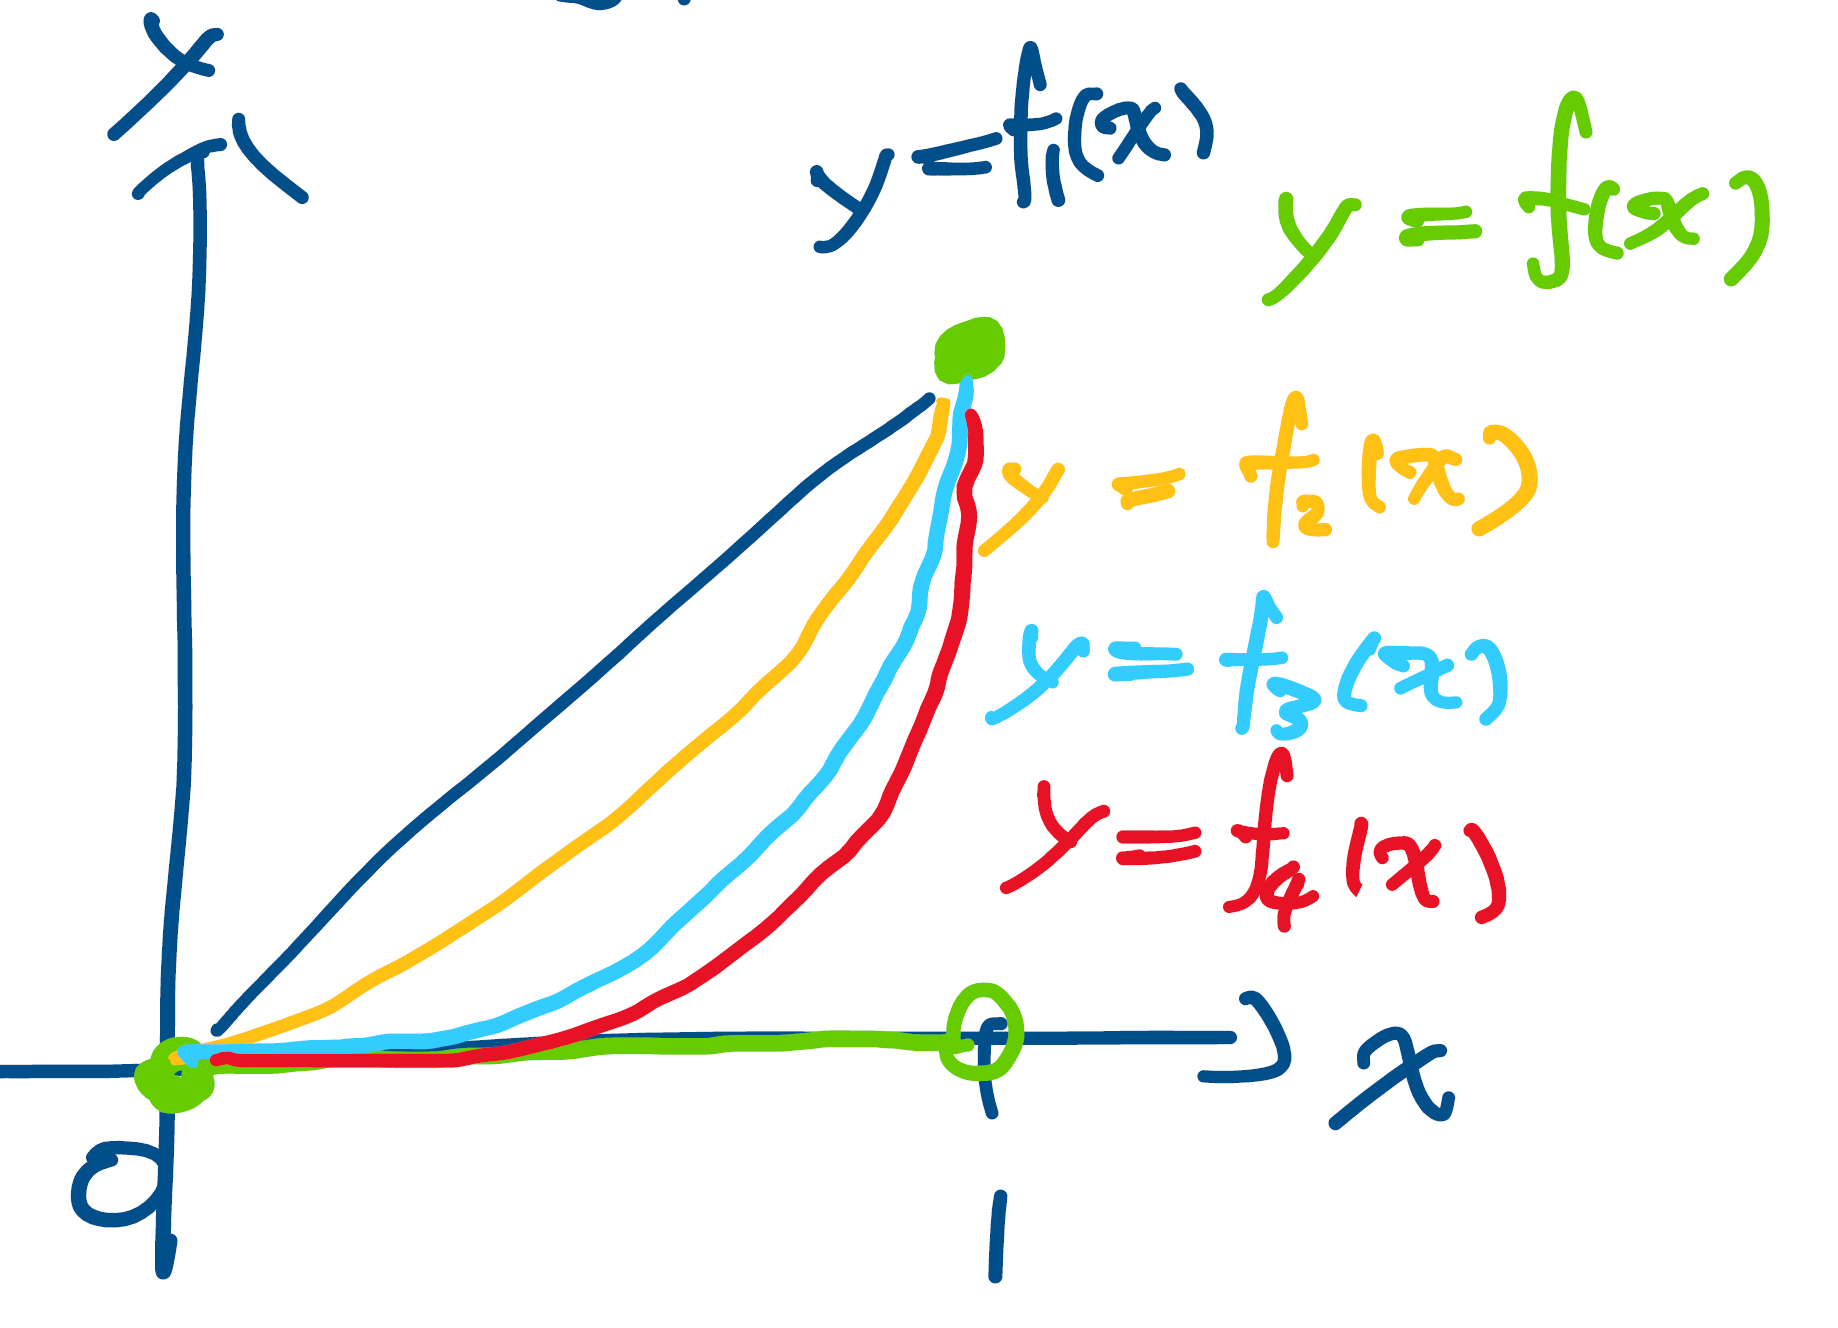 y
y = f₁(x)
y = f(x)
y = f₂(x)
y = f₃(x)
y = f₄(x)
x
0
1